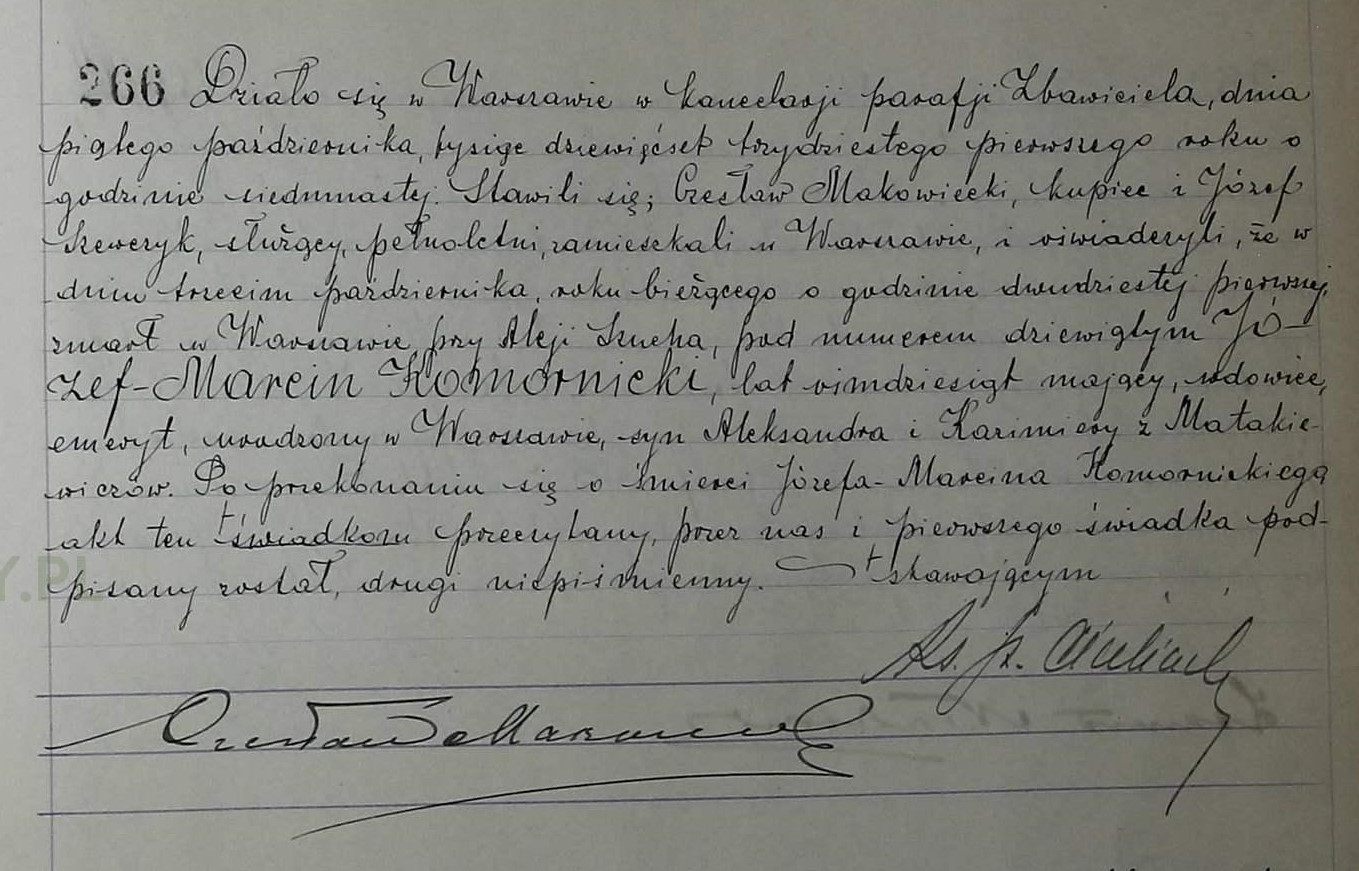 266 Działo się w Warszawie w kancelarji parafji Zbawiciela, dnia
piątego października, tysiąc dziewięćset trzydziestego pierwszego roku o
godzinie siedmnastej. Stawili się; Czesław Makowiecki, kupiec i Józef
Szewczyk, służący, pełnoletni, zamieszkali w Warszawie, i oświadczyli, że w
dniu trzecim października, roku bieżącego o godzinie dwudziestej pierwszej,
zmarł w Warszawie przy Aleji Szucha, pod numerem dziewiątym Jó-
zef-Marcin Komornicki, lat ośmdziesiąt mający, wdowiec,
emeryt, urodzony w Warszawie, syn Aleksandra i Kazimiery z Matakie-
wiczów. Po przekonaniu się o śmierci Józefa-Marcina Komornickiego
akt ten + świadkom przeczytany, przez nas i pierwszego świadka pod-
pisany został, drugi niepiśmienny. + stawającym
Ks. js.
Czesław Makowiecki
Y.PL